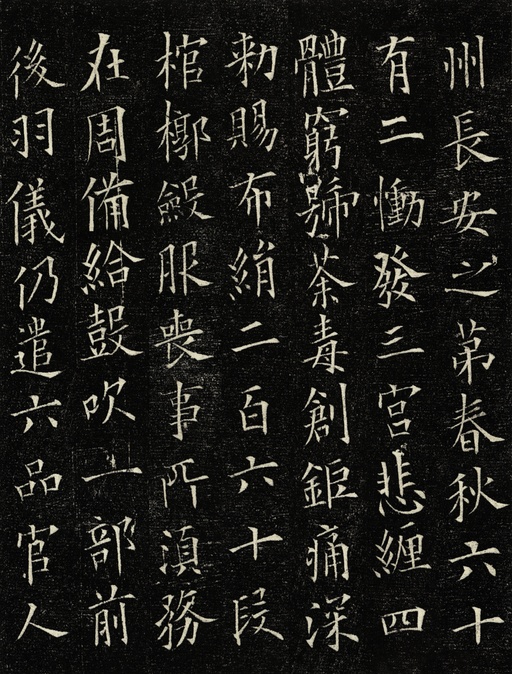 州長安之第春秋六十
有二慟發三宮悲纏四
體窮號荼毒創鉅痛深
勑賜布絹二百六十段
棺槨殮服喪事所湏務
在周備給鼓吹一部前
後羽儀仍遣六品官人